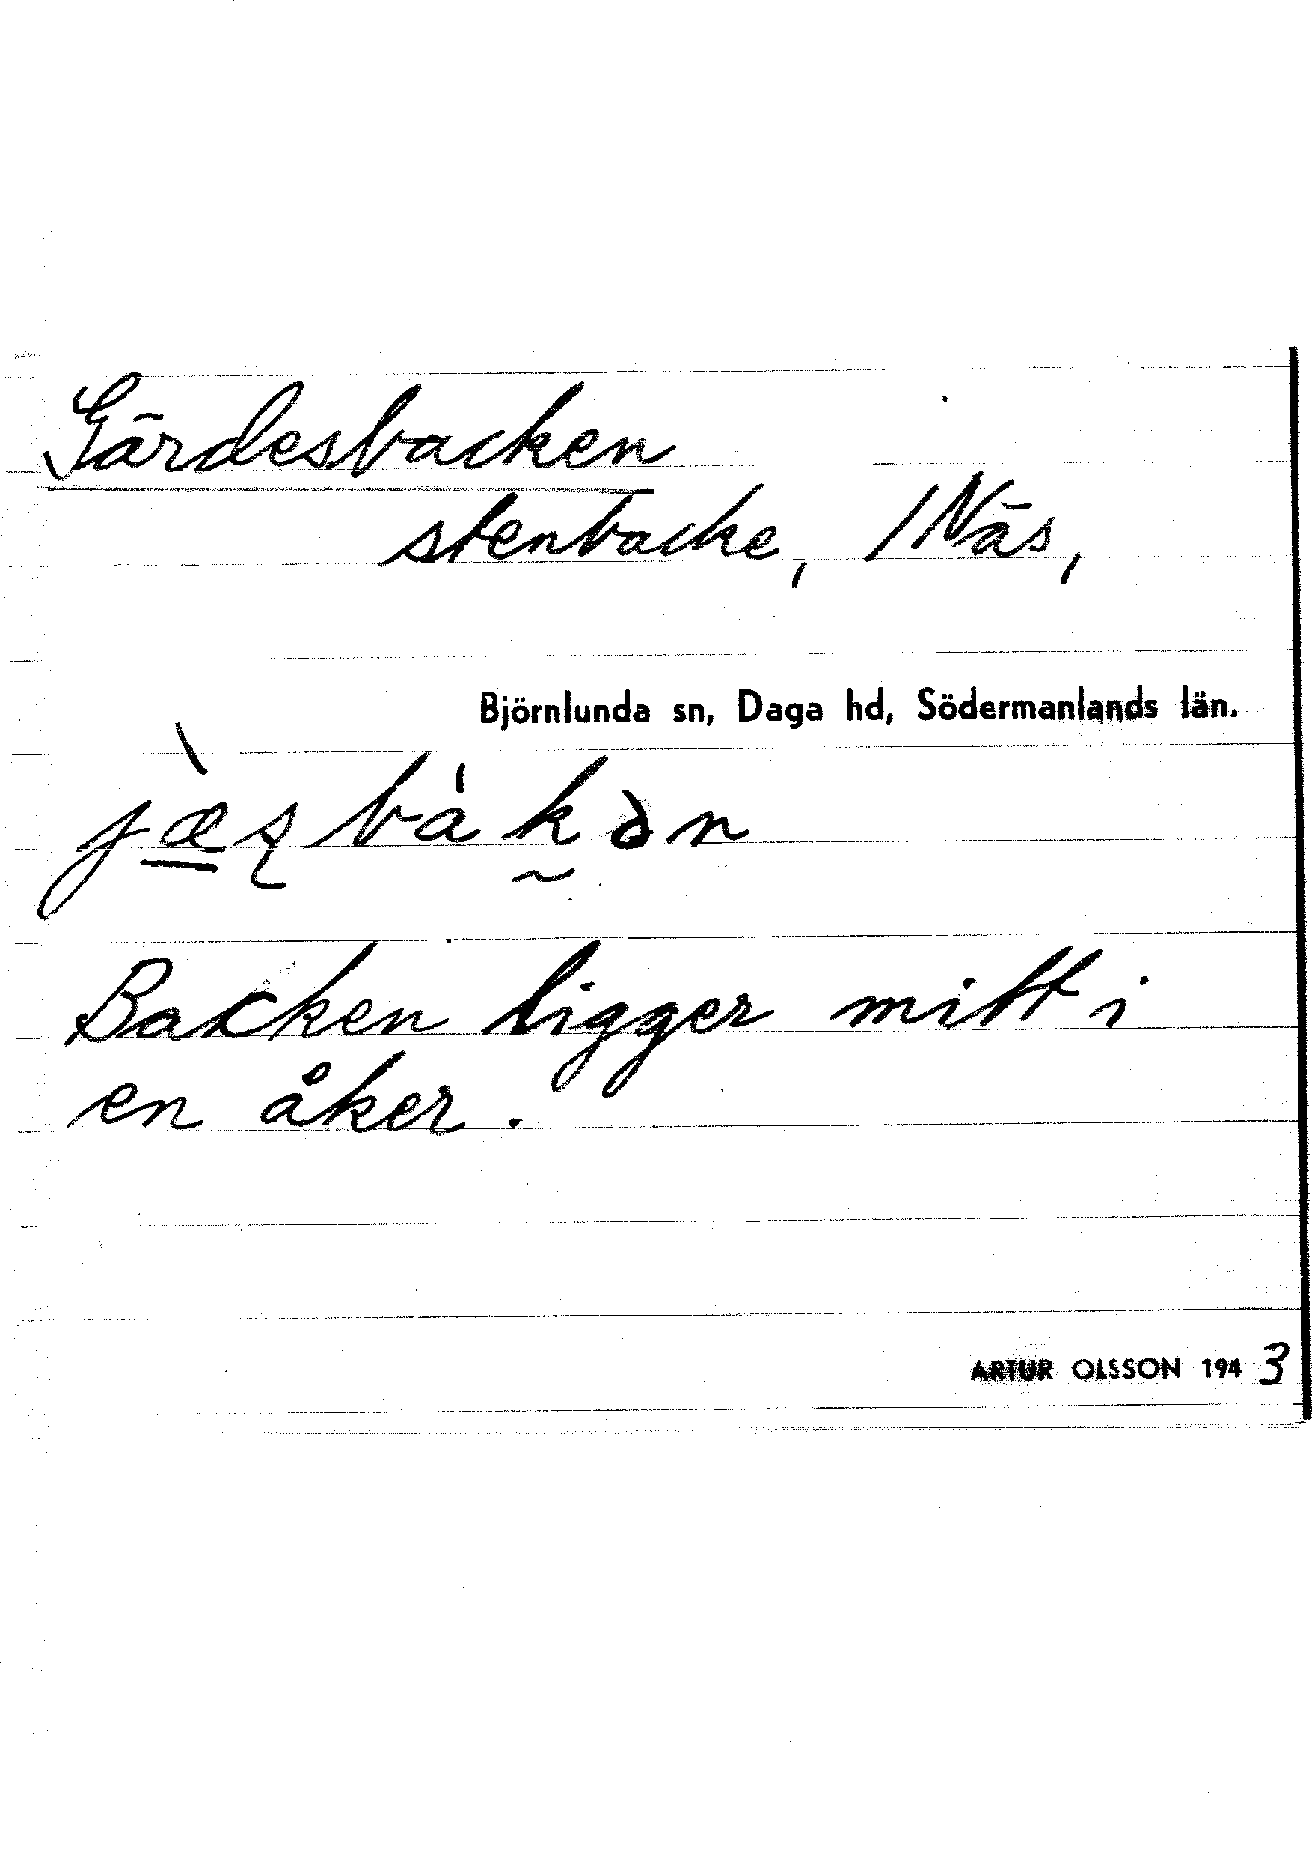 Gärdesbacken
stenbacke, /Näs,
Björnlunda sn, Daga hd, Södermanlands län.
jæ̀ʂbákən
Backen ligger mitt i
en åker.
ARTUR OLSSON 1943